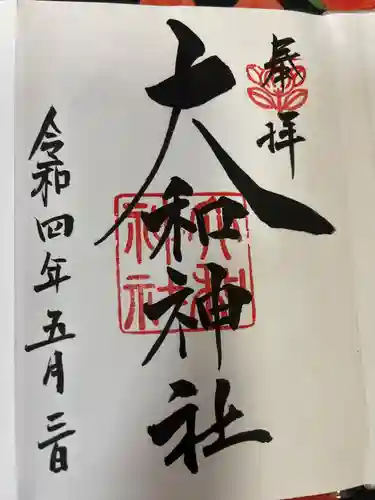 奉拝
大和神社
令和四年五月三日